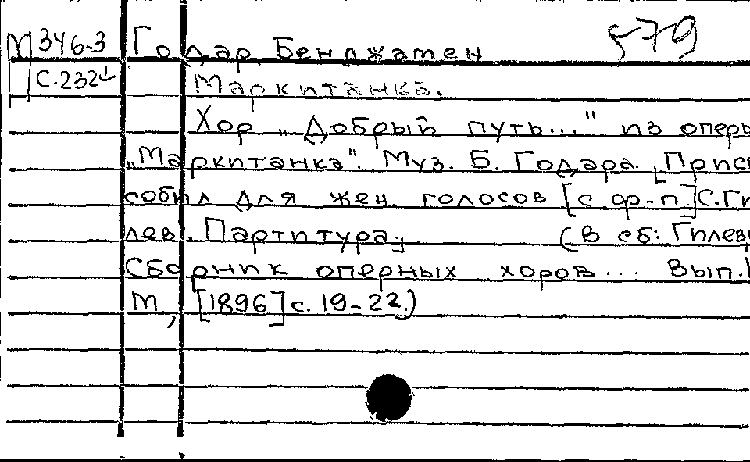 М 346-3 Годар, Бенджамен 579
С.232 Маркитанка.
Хор „Добрый путь..." из оперы
„Маркитанка". Муз. Б. Годара. [Присп
собил для жен. голосов [с ф-п.] С. Ги
лев]. Партитура.
(В сб: Гилев
Сборник оперных хоров... Вып.
М, [1896] с. 19-22.)